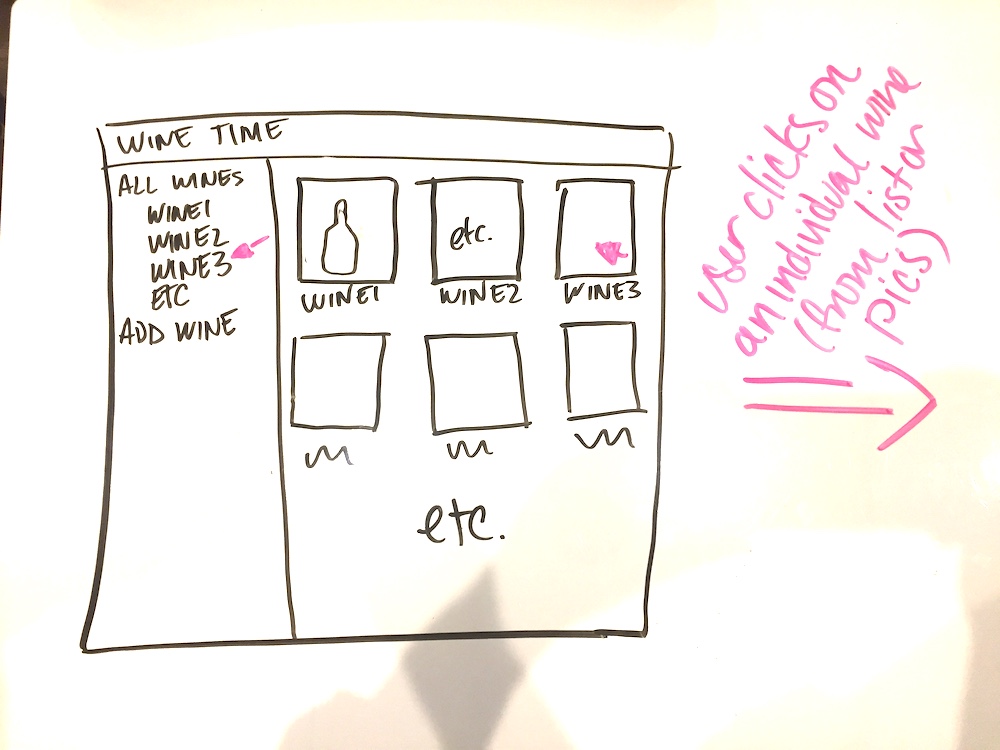 WINE TIME
ALL WINES
WINE1
WINE2
WINE3
ETC
ADD WINE
etc.
WINE1
WINE2
WINE3
etc.
user clicks on
an individual wine
(from list or
pics)